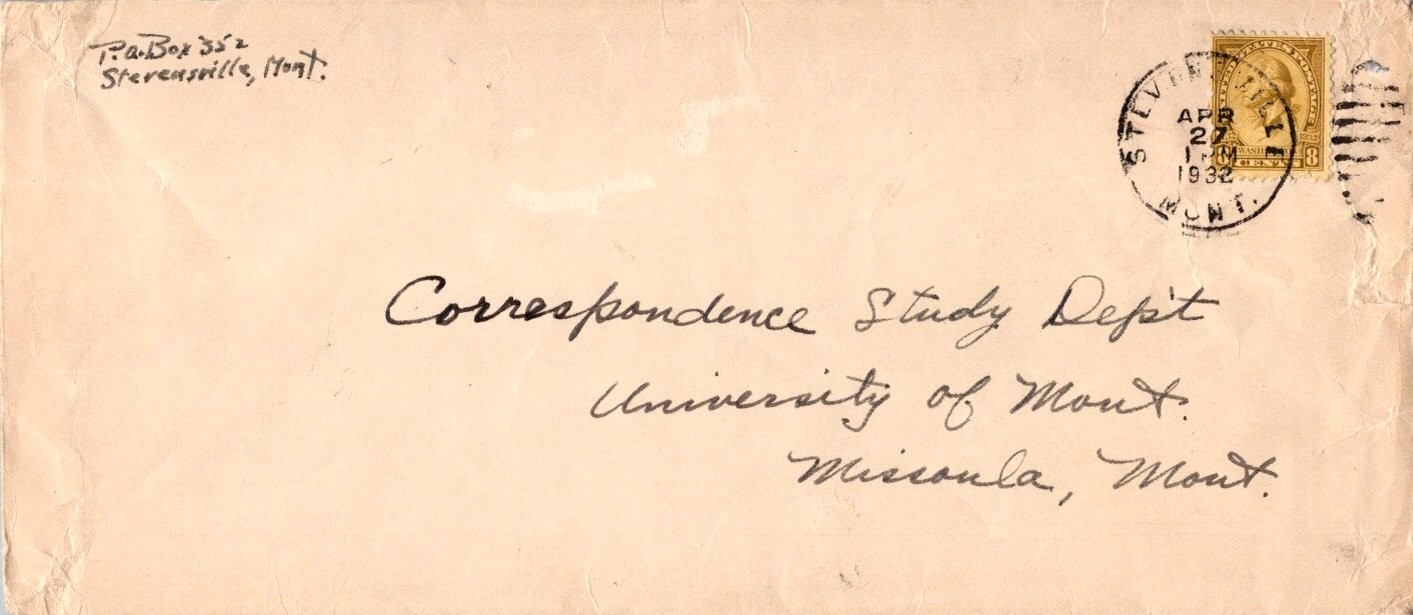 P.O. Box 352
Stevensville, Mont.
STEVENSVILLE
APR
27
1 PM
1932
MONT.
UNITED STATES POSTAGE
1932
WASHINGTON
8 CENTS 8
Correspondence Study Dep't
University of Mont.
Missoula, Mont.